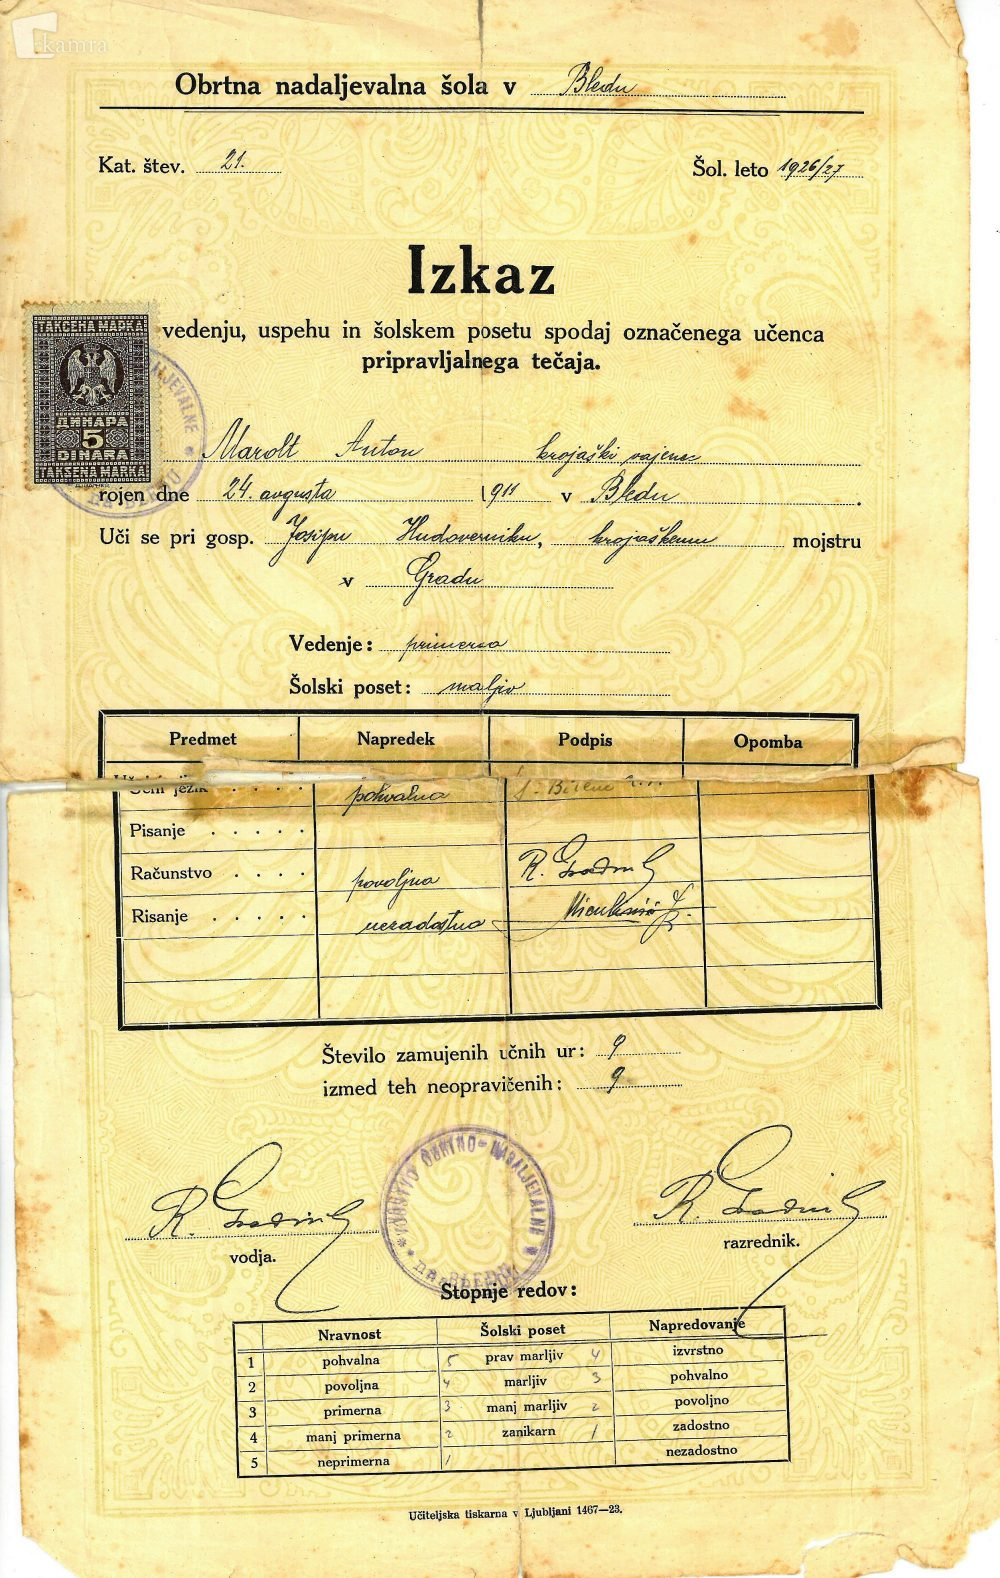 kamra
Obrtna nadaljevalna šola v Bledu
Kat. štev. 21. Šol. leto 1926/27
Izkaz
vedenju, uspehu in šolskem posetu spodaj označenega učenca
pripravljalnega tečaja.
ТАКСЕНА МАРКА
ДИНАРА
5
DINARA
TAKSENA MARKA
Marolt Anton krojaški vajenec
rojen dne 24. avgusta 1911 v Bledu.
Uči se pri gosp. Josipu Hudoverniku, krojaškemu mojstru
v Gradu
Vedenje: primerno
Šolski poset: marljiv
Predmet Napredek Podpis Opomba
Učni jezik pohvalno
Pisanje
Računstvo povoljno R.
Risanje nezadostno
Število zamujenih učnih ur: 9
izmed teh neopravičenih: 9
OBRTNO-NADALJEVALNE
na BLEDU
R.
R.
vodja.
razrednik.
Stopnje redov:
Nravnost Šolski poset Napredovanje
1 pohvalna 5 prav marljiv 4 izvrstno
2 povoljna 4 marljiv 3 pohvalno
3 primerna 3 manj marljiv 2 povoljno
4 manj primerna 2 zanikarn 1 zadostno
5 neprimerna 1 nezadostno
Učiteljska tiskarna v Ljubljani 1467—23.